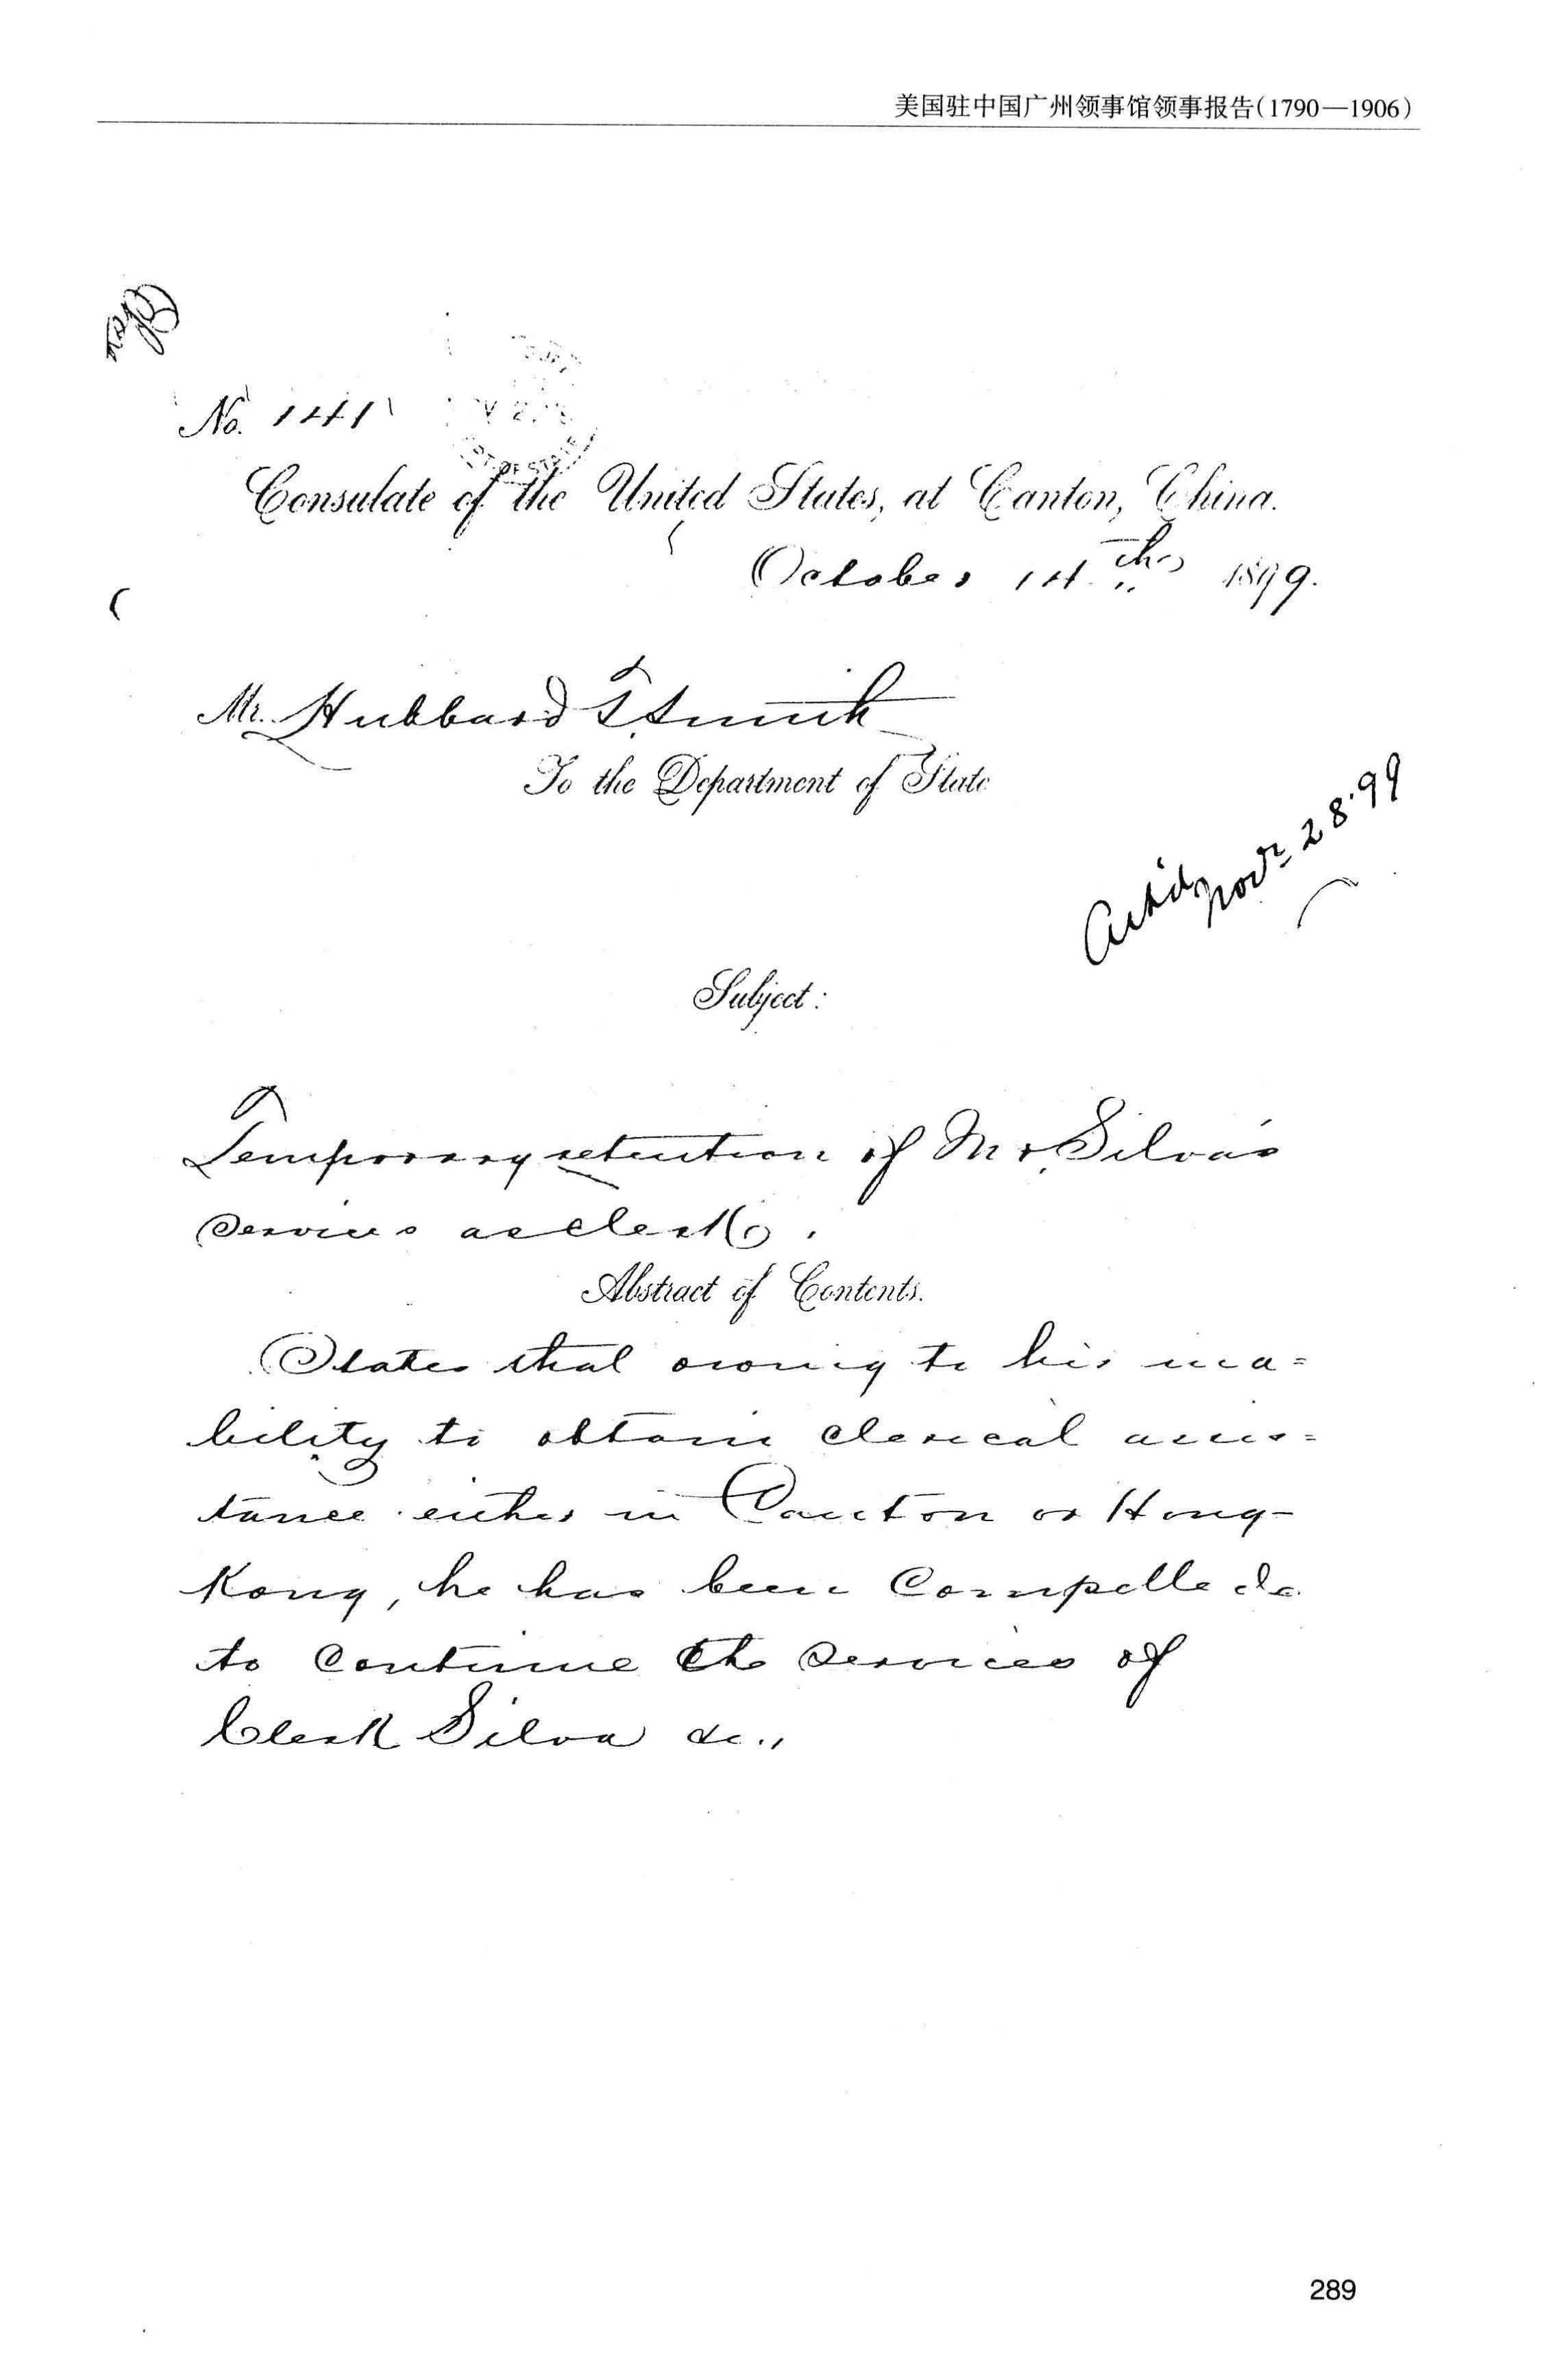 美国驻中国广州领事馆领事报告(1790—1906)
No. 141
Consulate of the United States, at Canton, China.
October 14th, 1899.
Mr. Hubbard T. Smith
To the Department of State
Ack'd Novr 28.99
Subject:
Temporary retention of Mr. Silva's
services as clerk.
Abstract of Contents.
States that owing to his ina=
bility to obtain clerical assis=
tance either in Canton or Hong-
Kong, he has been compelled
to continue the services of
Clerk Silva &c.,
289